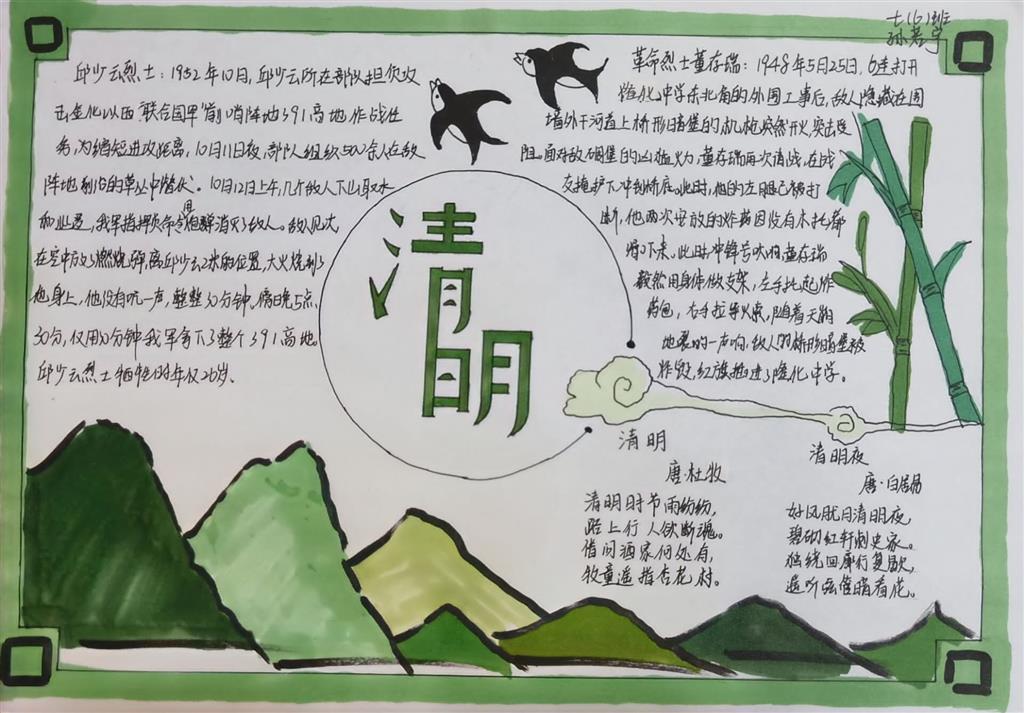 七(6)班
孙若宇
邱少云烈士:1952年10日,邱少云所在部队担负攻
击金化以西"联合国军"前哨阵地391高地作战任
务,为缩短进攻距离,10月11日夜,部队组织500余人在敌
阵地前的草丛中潜伏。10月12日上午,几个敌人下山取水
和业遇,我军指挥员命令用炮群消灭了敌人。敌见次
在空中放了燃烧弹,离邱少云2米的位置,大火烧到了
他身上,他没有吭一声,整整30分钟。傍晚5点
30分,仅用20分钟我军夺下了整个391高地。
邱少云烈士牺牲时年仅26岁、
革命烈士董存瑞:1948年5月25日,6连打开
隆化中学东北角的外围工事后,敌人隐藏在围
墙外干河道上桥形暗堡的机枪突然开火,突击受
阻。面对敌碉堡的凶猛火力,董存瑞再次请战,在战
友掩护下冲到桥底。此时,他的左腿已被打
断,他两次安放的炸药因没有木托都
滑了下来。此时冲锋号吹响,董存瑞
毅然用身体做支架,左手托起炸
药包,右手拉导火索,随着天崩
地裂的一声响,敌人的桥形暗堡被
炸毁,红旗插进了隆化中学。
清明
清明
唐·杜牧
清明时节雨纷纷,
路上行人欲断魂。
借问酒家何处有,
牧童遥指杏花村。
清明夜
唐·白居易
好风胧月清明夜,
碧砌红轩刺史家。
独绕回廊行复歇,
遥听弦管暗看花。